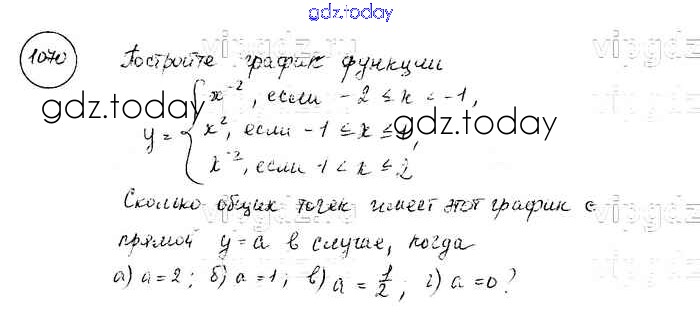 gdz.today
1070
Постройте график функции
y = { x⁻², если -2 ≤ x < -1,
x², если -1 ≤ x ≤ 1,
x⁻², если 1 < x ≤ 2
gdz.today gdz.today
Сколько общих точек имеет этот график с
прямой y = a в случае, когда
а) a = 2; б) a = 1; в) a = 1/2; г) a = 0?